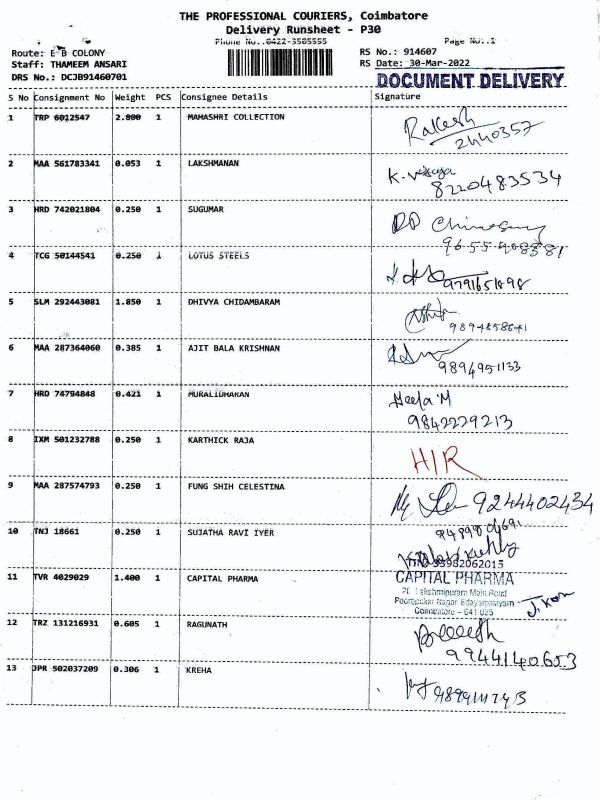 THE PROFESSIONAL COURIERS, Coimbatore
Delivery Runsheet - P30
Phone No.:0422-3505555 Page No.:1
Route: E B COLONY RS No.: 914607
Staff: THAMEEM ANSARI RS Date: 30-Mar-2022
DRS No.: DCJB91460701 DOCUMENT DELIVERY
S No Consignment No Weight PCS Consignee Details Signature
1 TRP 6012547 2.800 1 MAHASHRI COLLECTION Rakesh
2440357
2 MAA 561783341 0.053 1 LAKSHMANAN K.
8220483534
3 HRD 742021804 0.250 1 SUGUMAR
4 TCG 50144541 0.250 1 LOTUS STEELS
9791651898
5 SLM 292443081 1.850 1 DHIVYA CHIDAMBARAM
6 MAA 287364060 0.385 1 AJIT BALA KRISHNAN
9894951133
7 HRD 74794848 0.421 1 MURALIDHARAN Geeta M
9842229213
8 IXM 501232788 0.250 1 KARTHICK RAJA HIR
9 MAA 287574793 0.250 1 FUNG SHIH CELESTINA 9244402434
10 TNJ 18661 0.250 1 SUJATHA RAVI IYER
11 TVR 4029029 1.400 1 CAPITAL PHARMA CAPITAL PHARMA
Lakshmipuram Main Road
Nagar Edayarpalayam
Coimbatore - 641 025
12 TRZ 131216931 0.605 1 RAGUNATH
9944140653
13 JPR 502037209 0.306 1 KREHA